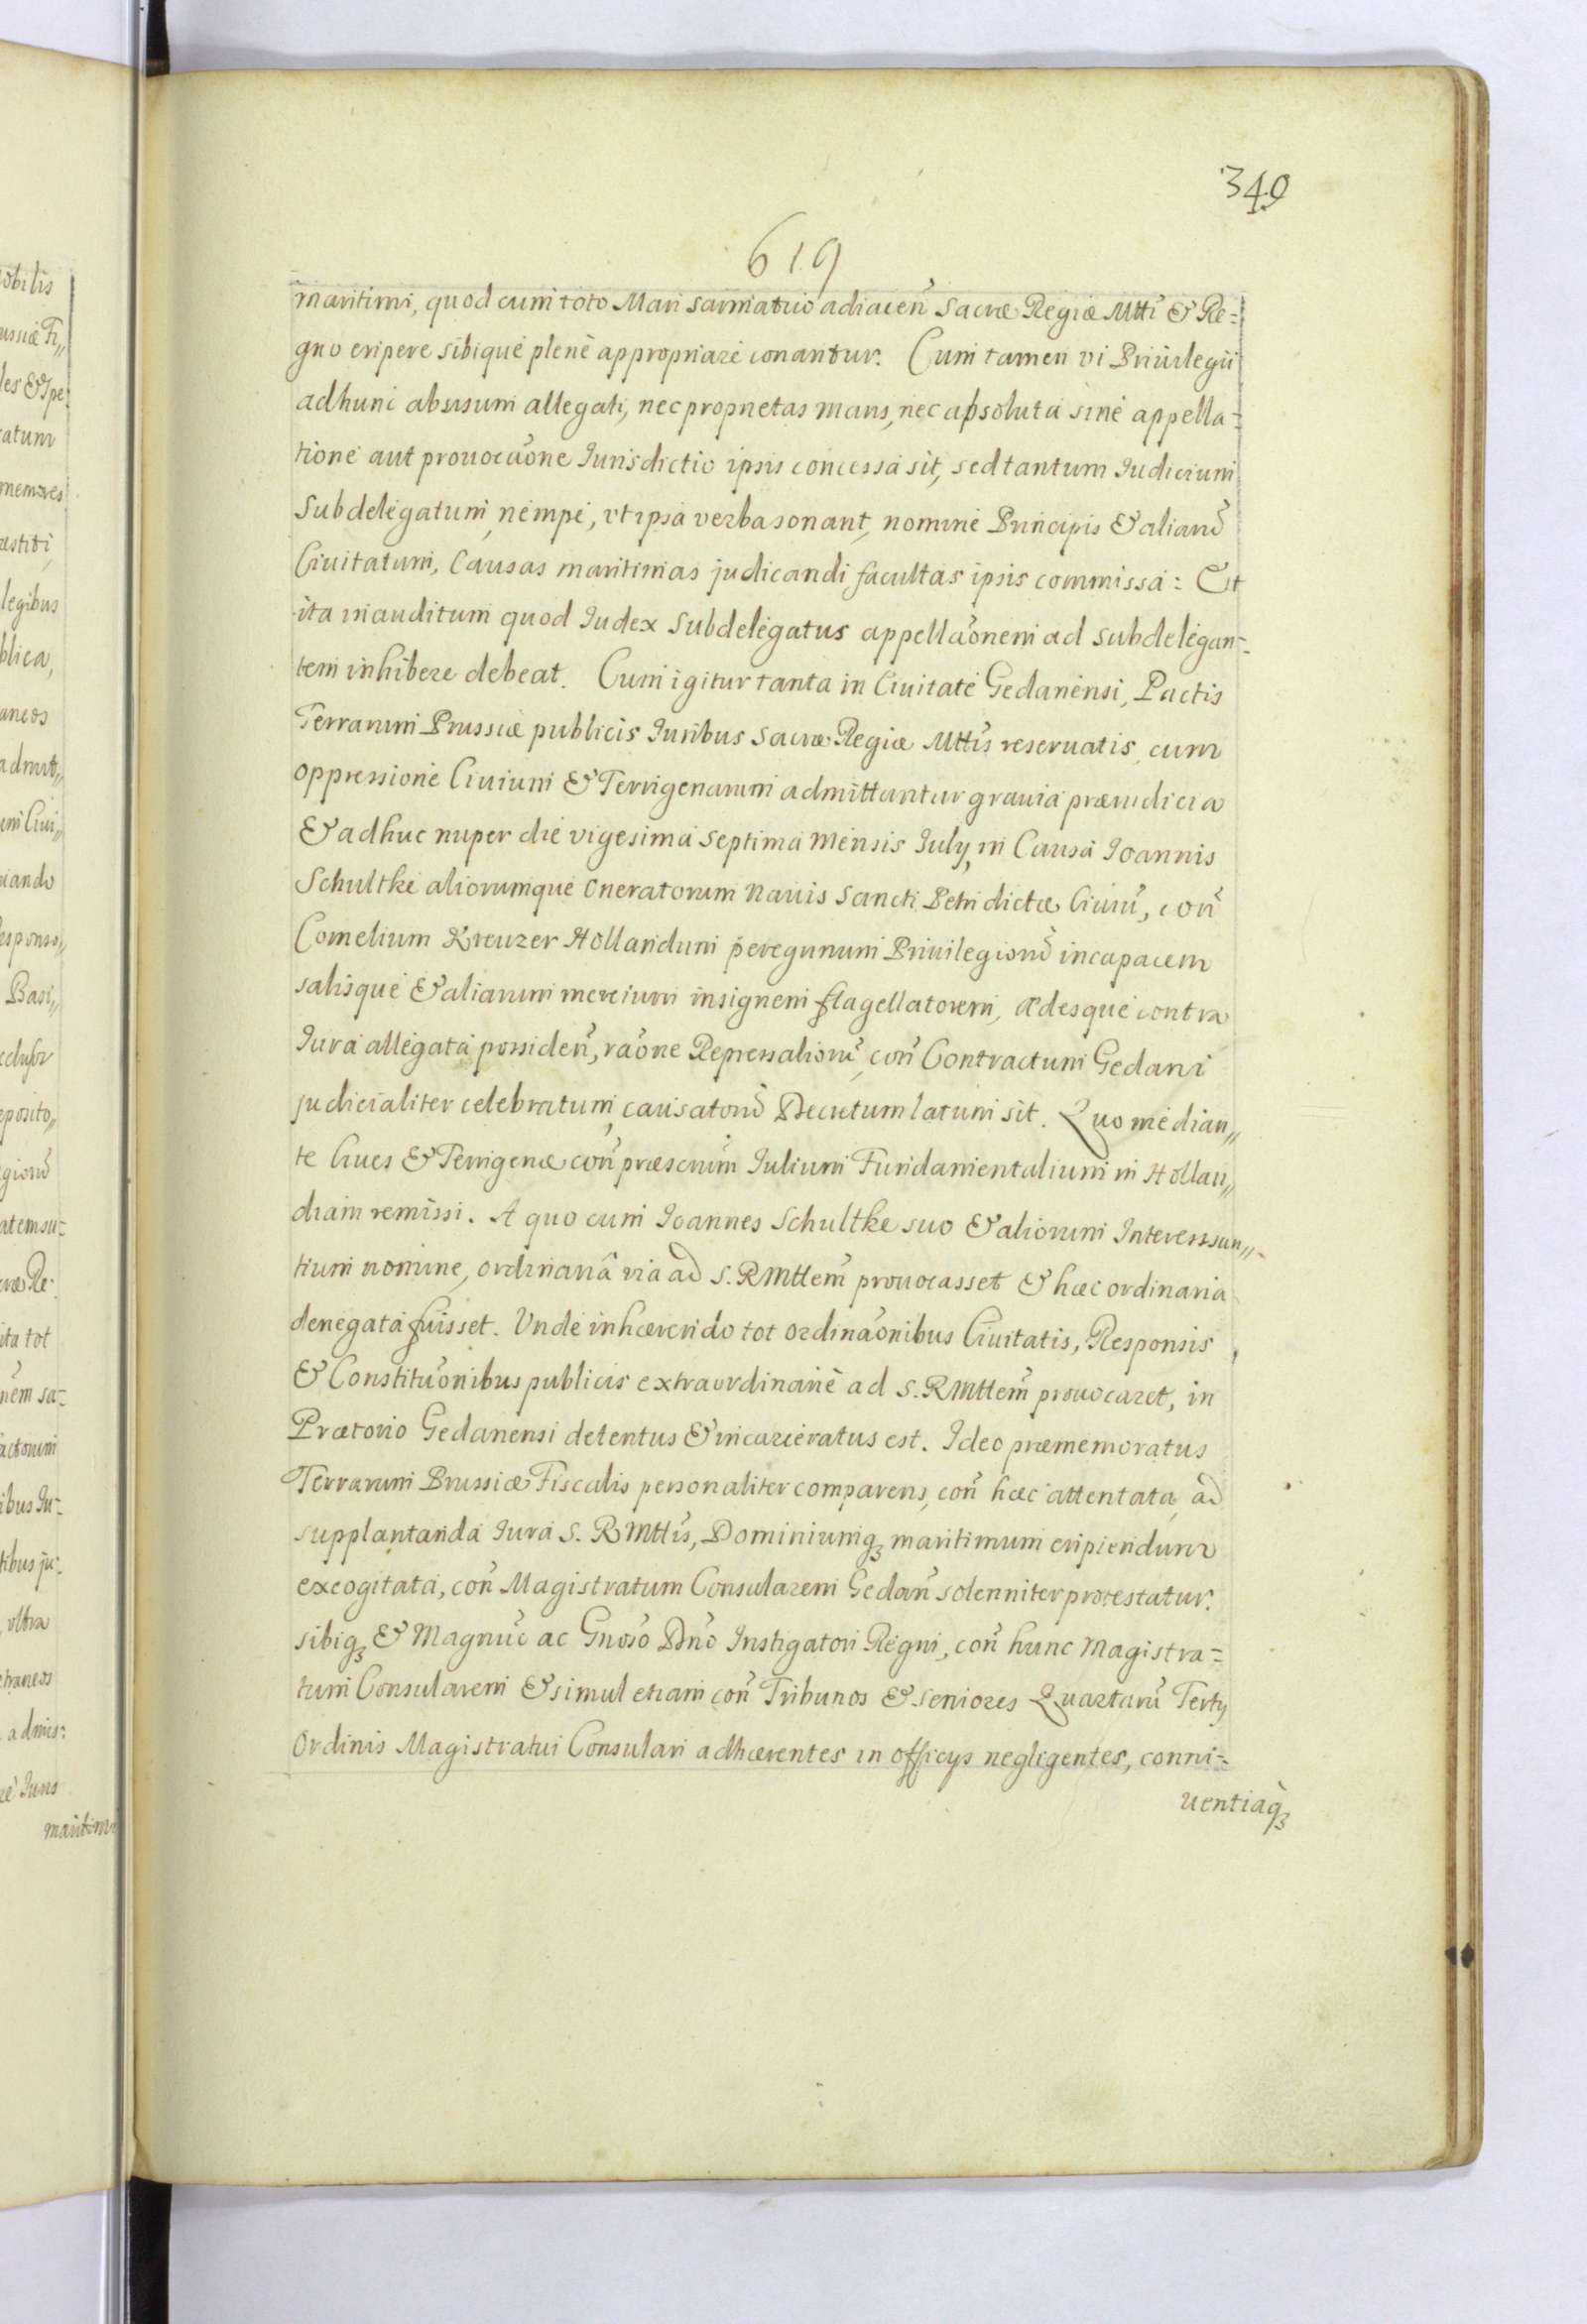 340
619
maritimi, quod cum toto Mari sarmatico adiaceñ Sacræ Regiæ Mtti & Re=
gno eripere sibique plenè appropriare conantur. Cum tamen vi Priuilegii
ad hunc abusum allegati, nec proprietas maris, nec absoluta sine appella=
tione aut prouocãone Iurisdictio ipsis concessa sit, sed tantum Iudicium
Subdelegatum, nempe, vt ipsa verba sonant, nomine Principis & aliarũ
Ciuitatum, Causas maritimas judicandi facultas ipsis commissa: Et
ita inauditum quod Iudex Subdelegatus appellãonem ad subdelegan=
tem inhibere debeat. Cum igitur tanta in Ciuitate Gedanensi, Pactis
Terrarum Prussiæ publicis Iuribus Sacræ Regiæ Mttis reseruatis, cum
oppressione Ciuium & Terrigenarum admittantur grauia præiudicia
& adhuc nuper die vigesima septima mensis July, in Causa Ioannis
Schultke aliorumque oneratorum Nauis Sancti Petri dictæ Ciuiũ, coñ
Cornelium Kreuzer Hollandum peregrinum Priuilegiorũ incapacem
salisque & aliarum mercium insignem flagellatorem, ædesque contra
Iura allegata possideñ, rãone Repressaliorũ, coñ Contractum Gedani
judicialiter celebratum, causatorũ Decretum latum sit. Quo median„
te Ciues & Terrigenæ coñ præscriptũ Iurium Fundamentalium in Hollan„
diam remissi. A quo cum Ioannes Schultke suo & aliorum Interessan„
tium nomine, ordinariâ via ad S. RMttem prouocasset & hæc ordinaria
denegata fuisset. Vnde inhærendo tot ordinãonibus Ciuitatis, Responsis
& Constitũonibus publicis extraordinariè ad S. RMttem prouocaret, in
Prætorio Gedanensi detentus & incarceratus est. Ideo præmemoratus
Terrarum Prussiæ Fiscalis personaliter comparens, coñ hæc attentata, ad
supplantanda Iura S. RMttis, Dominiumqꝫ maritimum eripiendum
excogitata, coñ Magistratum Consularem Gedañ solenniter protestatur.
sibiqꝫ & Magnũc ac Gnõso Dnõ Instigatori Regni, coñ hunc Magistra=
tum Consularem & simul etiam coñ Tribunos & seniores Quartarũ Tertÿ
Ordinis Magistratui Consulari adhærentes in officÿs negligentes, conni=
uentiaqꝫ